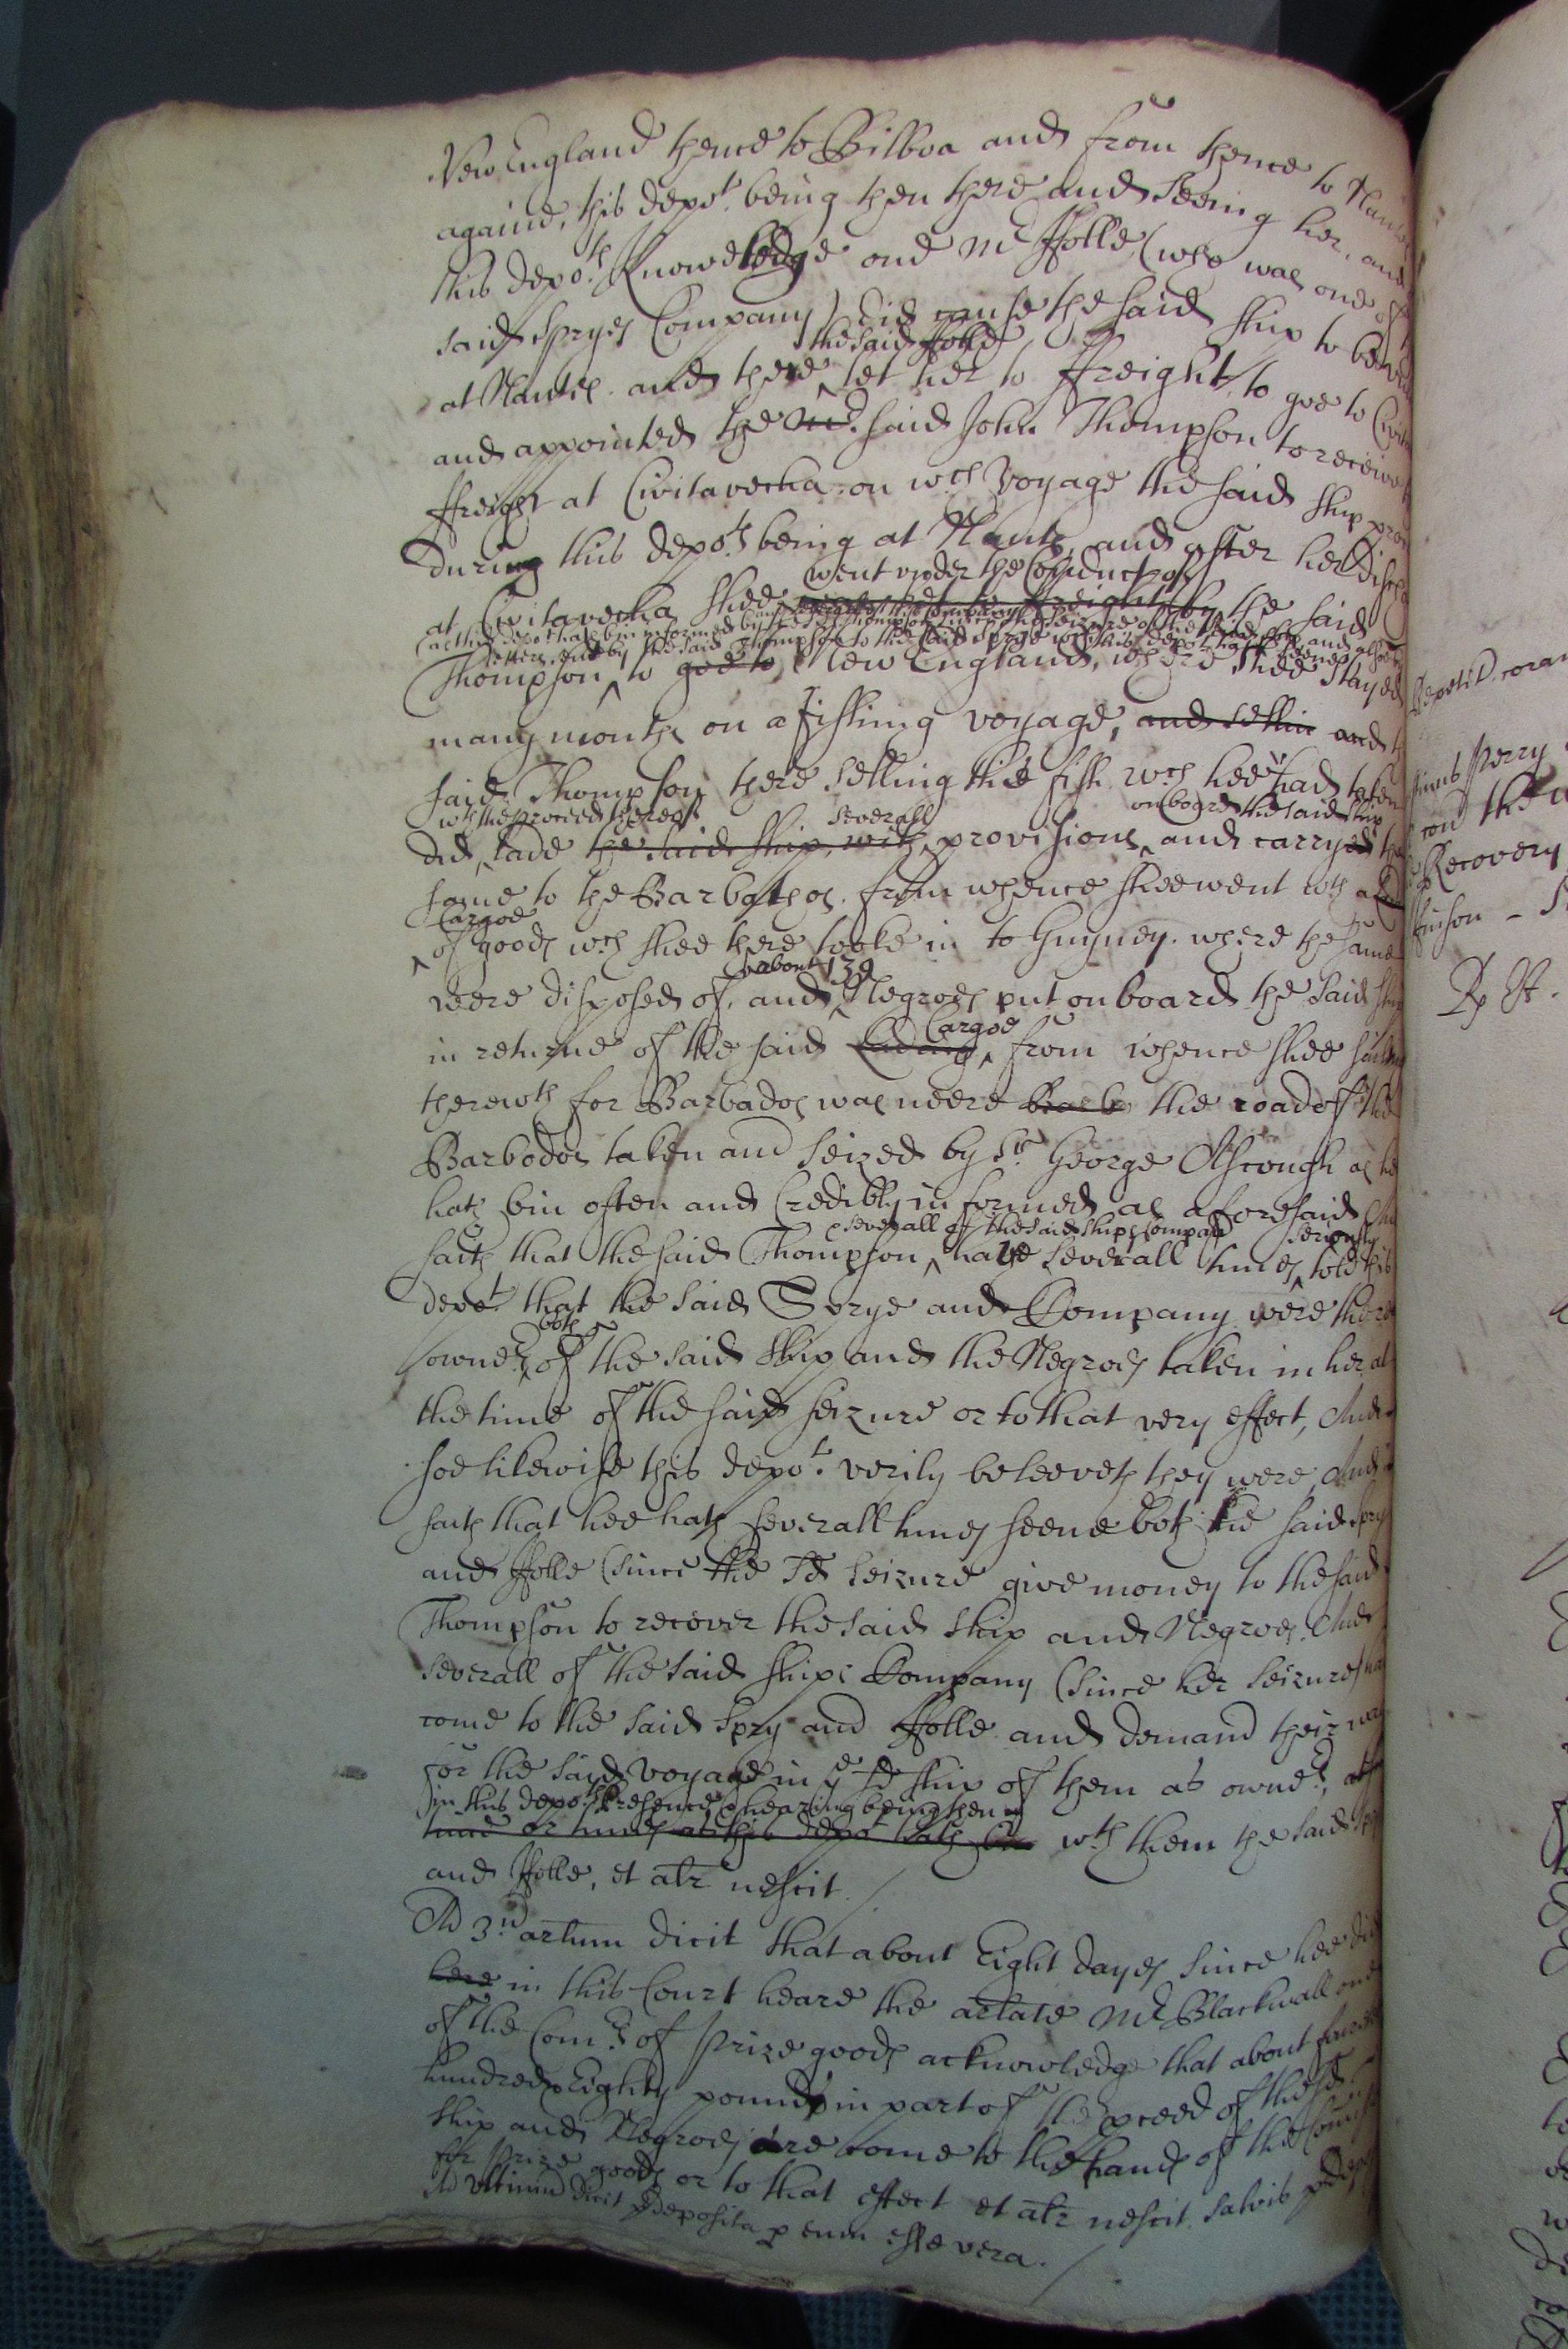 New England thence to Bilboa and from thence to Nantes
againe, this depot. being then there and seeing her, and
this depots. Knowelledge one Mr ffolle (who was one of
said Spryes Company) did cause the said ship to be
the said ffolle
at Nantes. and there let her to ffreight to goe to
and appointed the Mr. said John Thompson to receive
ffreight at Civitavecha. on wch voyage the said ship
during this depots being at Nants, and after her
went vnder the Conduct of
at Civitavecha shee by the said
letters, and by the said Thompson to the said Sprye
Thompson to goe to New England, where shee stayed
many months on a fishing voyage, and sellin and
said Thompson there selling the fish wch hee had taken
wth the proceed thereof severall on board the said ship
did lade the said ship with provisions and carryed the
same to the Barbathos. from whence shee went wth a
Cargoe
of goods wch shee there tooke in to Guyney. where the same
about 130
were disposed of, and Negroes put on board the said ship
Cargoe
in returne of the said Ladeing, from whence shee
therewth for Barbados was neere Barb the road of the
Barbados taken and seized by Sr. George Ascough as hee
hath bin often and Credibly informed as aforesaid
severall of the said ships company seriously
saith that the said Thompson have severall times told this
depot. that the said Sprye and Company were there
both
owners of the said Ship and the Negroes taken in her at
the time of the said seizure or to that very effect, And
soe likewise this depot. verily beleeveth they were, And
saith that hee hath severall times seene both the said Spry
and ffolle (since the sd seizure give money to the said
Thompson to recover the said ship and Negroes. And
severall of the said ships Company (since her seizure)
come to the said Spry and ffolle and demand their
for the said voyage in ye sd ship of them as owners,
in this depots presence & hearing being then
time or times as this depot hath bin wth them the said
and ffolle, et alr nescit. /
Ad 3um artlum dicit that about Eight dayes since hee did
here in this Court heare the arlate Mr Blackwall one
of the Comrs of Prize goods acknowledge that about
hundred & Eighty pounds in part of the proceed of the sd
ship and Negroes are come to the hands of the
for Prize goods or to that effect et alr nescit. salvis
Ad Ultimum dicit deposita p eum esse vera. /
Repetit coram
Perry
Recovery